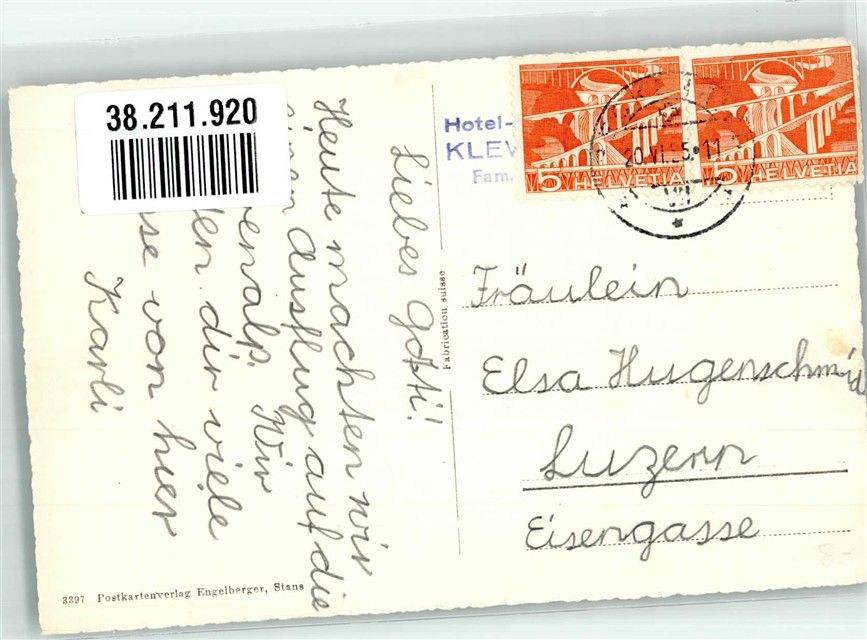 38.211.920
Hotel-
KLEW
Fam.
5 HELVETIA
5 HELVETIA
20.VI.5 11
Liebes Gotti!
Heute machten wir
einen Ausflug auf die
enalp. Wir
en dir viele
sse von hier
Karli
Fabrication suisse
Fräulein
Elsa Hugenschmid
Luzern
Eisengasse
8-
3397 Postkartenverlag Engelberger, Stans